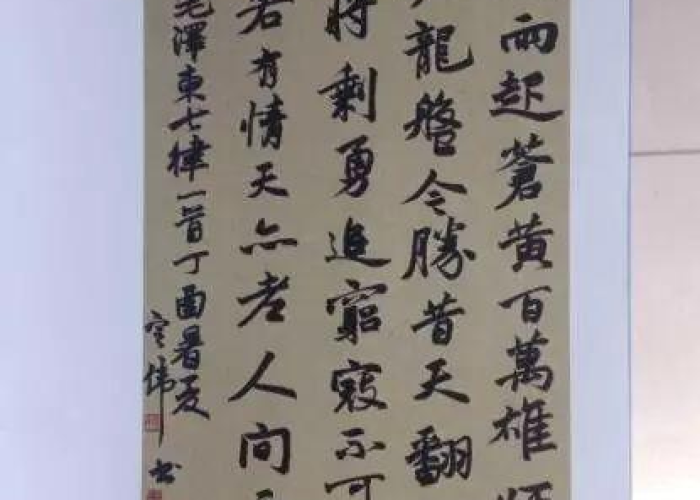 雨起蒼黃百萬雄師
龍盤今勝昔天翻
將剩勇追窮寇不可
若有情天亦老人間
毛澤東七律一首丁酉暑夏
偉书